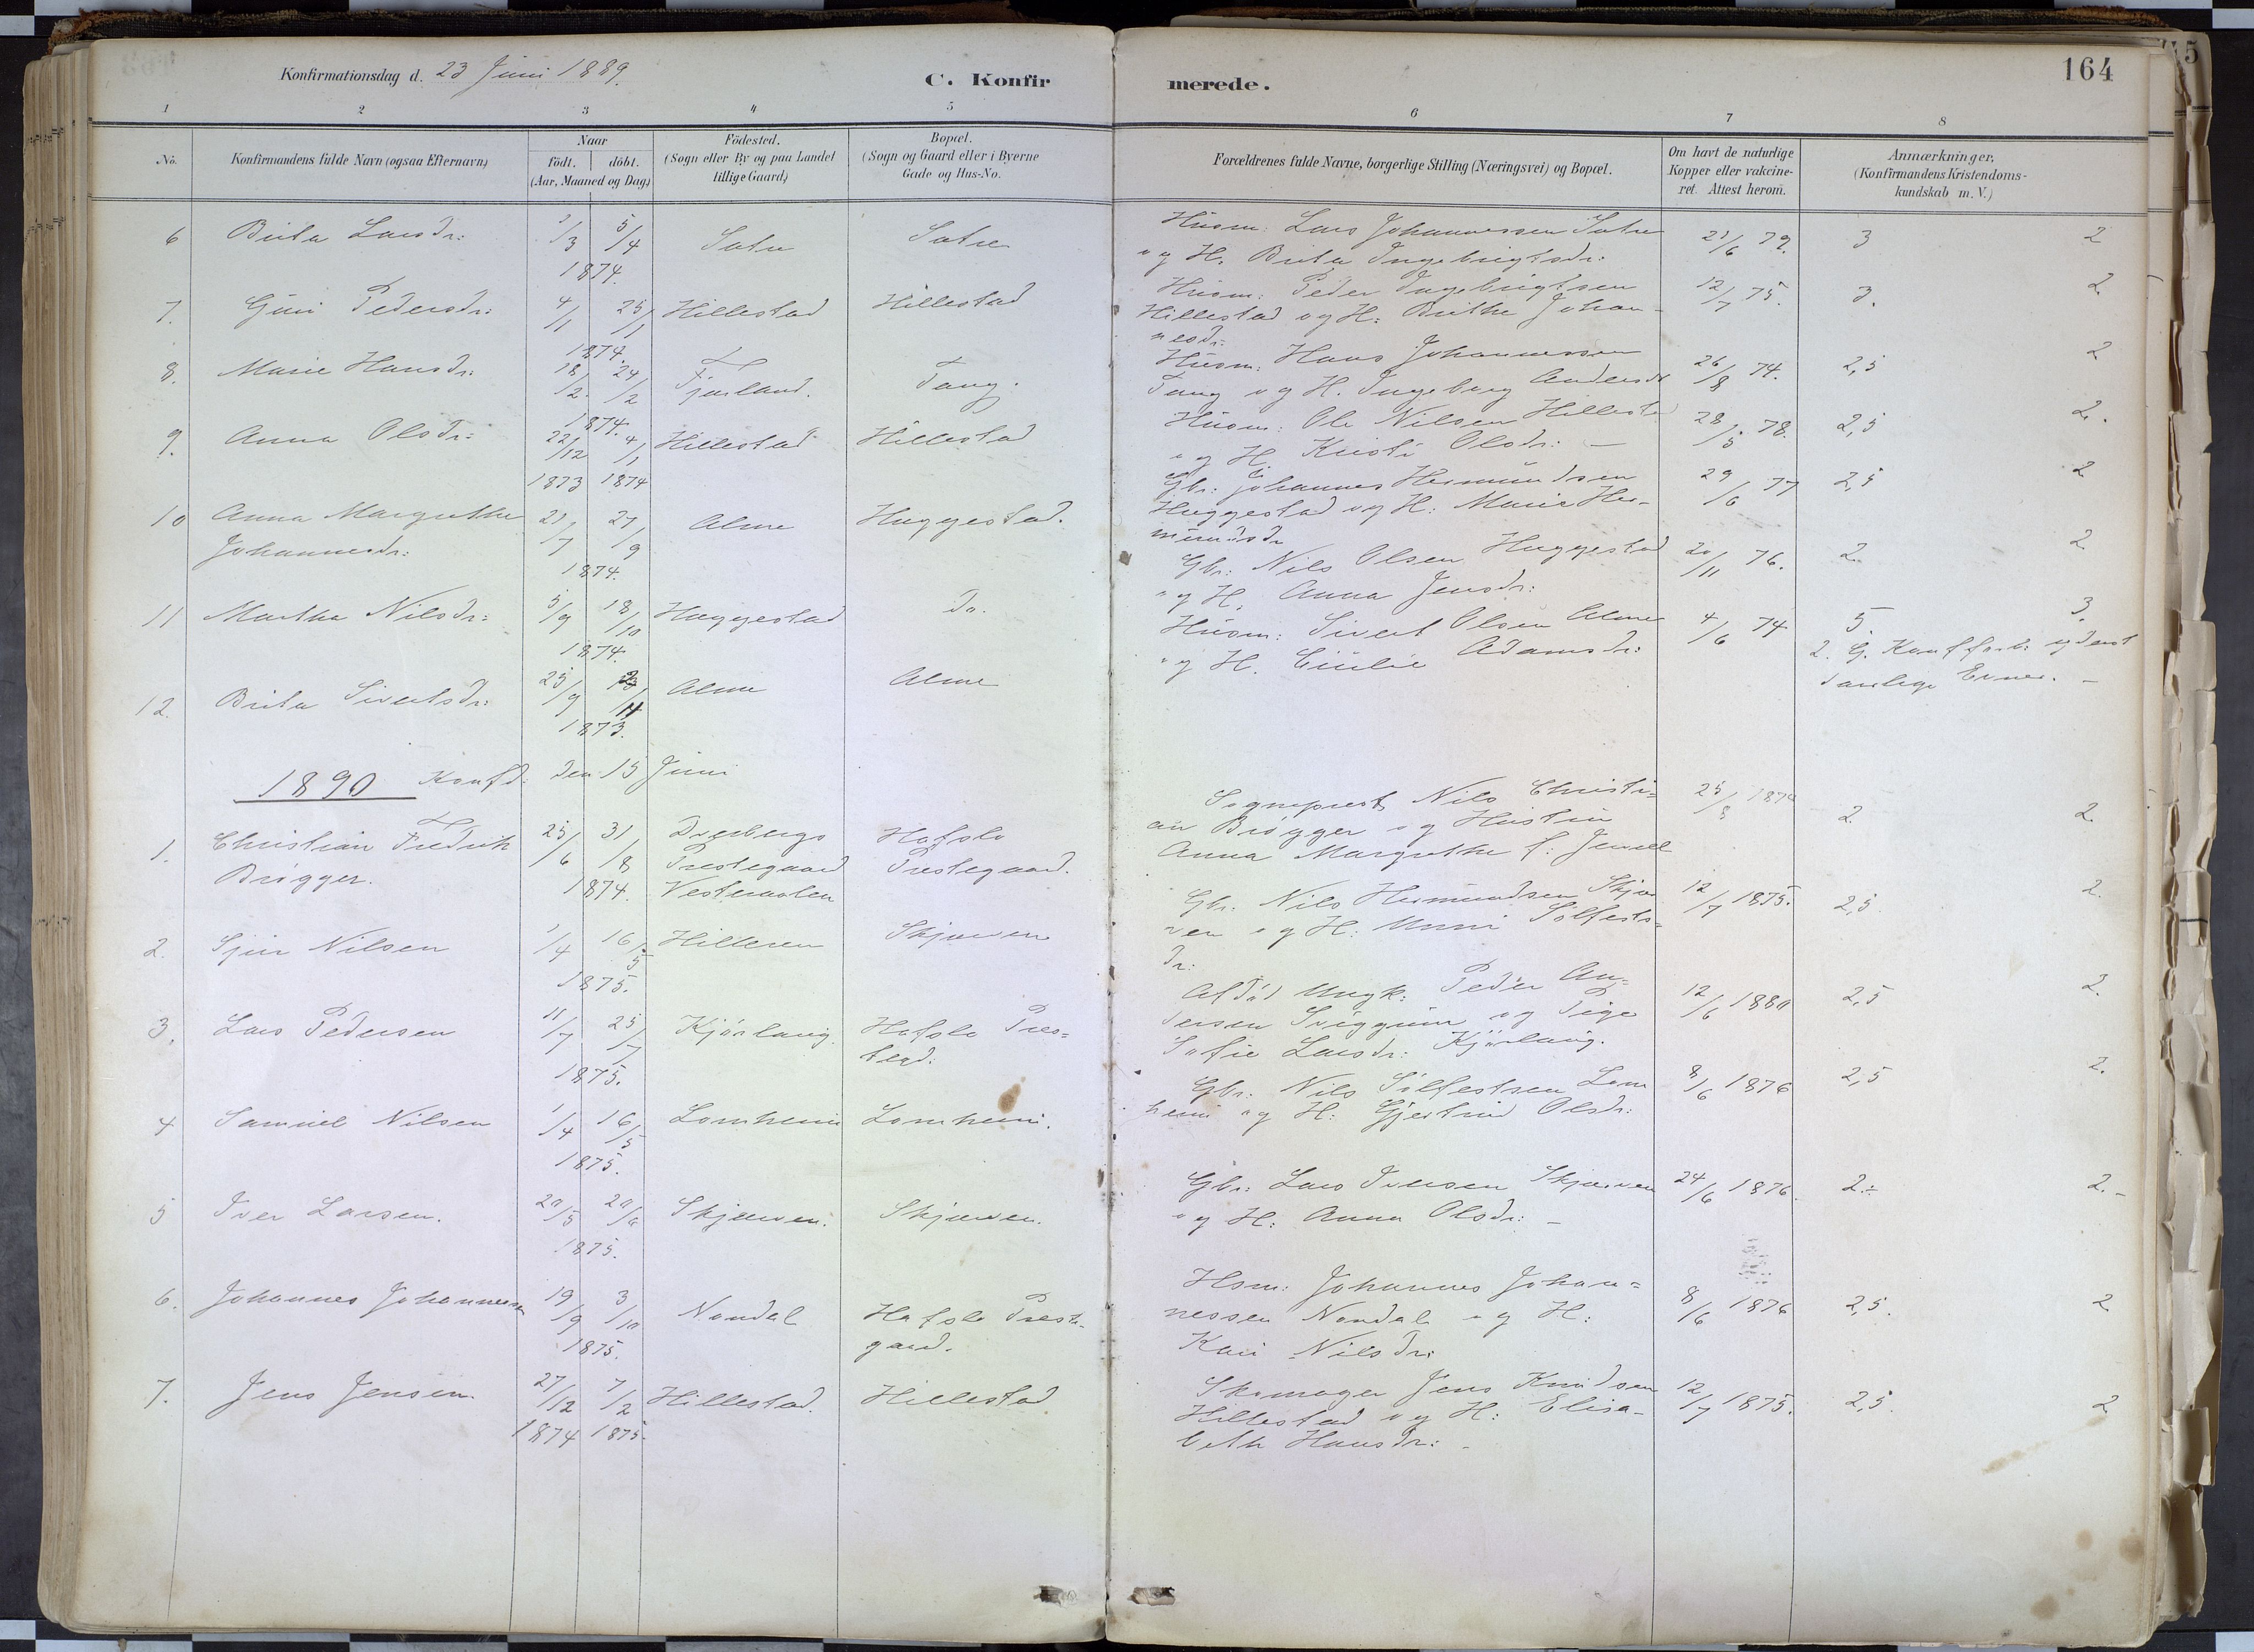 164
Konfirmationsdag d. 23 Juni 1889.
C. Konfirmerede.
1 2 3 4 5 6 7 8
No.
Konfirmandens fulde Navn (ogsaa Efternavn)
Naar
födt. döbt.
(Aar, Maaned og Dag)
Födested.
(Sogn eller By og paa Landet
tillige Gaard)
Bopæl.
(Sogn og Gaard eller i Byerne
Gade og Hus-No.
Forældrenes fulde Navne, borgerlige Stilling (Næringsvei) og Bopæl.
Om havt de naturlige
Kopper eller vakcine-
ret. Attest herom.
Anmærkninger,
(Konfirmandens Kristendoms-
kundskab m. V.)
6 Brita Larsdr: 1/3 5/4 Sætre Sætre
1874.
Husm: Lars Johannessen Sætre 21/6 79. 3 2
og H. Brita Ingebrigtsdr:
7. Guri Pedersdr: 4/1 25/1 Hillestad Hillestad
1874.
Husm: Peder Ingebrigtsen 12/7 75. 3. 2
Hillestad og H: Brithe Johan-
nesdr:
8. Marie Hansdr: 18/2 24/2 Fjærland. Tang.
1874.
Husm: Hans Johannessen 26/8 74. 2,5 2
Tang og H. Ingeborg Andersdr
9. Anna Olsdr: 22/12 4/1 Hillestad Hillestad
1873 1874
Husm: Ole Nilsen Hillestad 28/5 78. 2,5 2.
og H. Kristi Olsdr: –
10 Anna Margrethe 21/7 27/9 Alme Huggestad.
Johannesdr:
1874.
Gbr: Johannes Hermundsen 29/6 77 2,5 2
Huggestad og H: Marie Her-
mundsdr
11 Martha Nilsdr: 5/9 18/10 Huggestad Do.
1874.
Gbr: Nils Olsen Huggestad 20/11 76. 2. 2
og H. Anna Jensdr:
12. Brita Sivertsdr: 25/9 Alme Alme
1873.
Husm: Sivert Olsen Alme 4/6 74 5 3.
og H. Adamsdr: 2. G. Konf. yderst
daarlige Evner. –
1890 Konfd: den 15 Juni
1. Christian Fredrik 25/6 31/8 Dverbergs Hafslo
Brøgger. Prestegaard Prestegaard.
1874. Vesteraalen
Sogneprest Nils Christi- 25/8 1874 2. 2.
an Brøgger og Hustru
Anna Margrethe f: Jewell
2. Sjur Nilsen 1/4 16/5 Hilleren Skjærven
1875.
Gbr: Nils Hermundsen Skjær 12/7 1875. 2,5. 2.
ven og H: Unni Sölfests-
dr:
3. Lars Pedersen 11/7 25/7 Kjörlaug. Hafslo Pres-
1875. tegd:
Afdød Ungk: Peder An- 12/6 1880 2,5 2.
dersen Sviggum og Pige
Sofie Larsdr: Kjörlaug.
4 Samuel Nilsen 1/4 16/5 Lomheim Lomheim.
1875.
Gbr: Nils Sölfestsen Lom 8/6 1876 2,5 2.
heim og H: Gjertrud Olsdr:
5 Iver Larsen. 20/5 20/6 Skjærven. Skjærven.
1875.
Gbr: Lars Iversen Skjærven 24/6 1876. 2.÷ 2.-
og H: Anna Olsdr: –
6. Johannes Johannessen 19/9 3/10 Nondal Hafslo Preste-
1875. gaard.
Hsm: Johannes Johan- 8/6 1876 2,5. 2
nessen Nondal og H:
Kari Nilsdr:
7. Jens Jensen. 27/12 7/2 Hillestad. Hillestad
1874 1875.
Skomager Jens Knudsen 12/7 1875. 2,5. 2
Hillestad og H: Elisa-
beth Hansdr: –